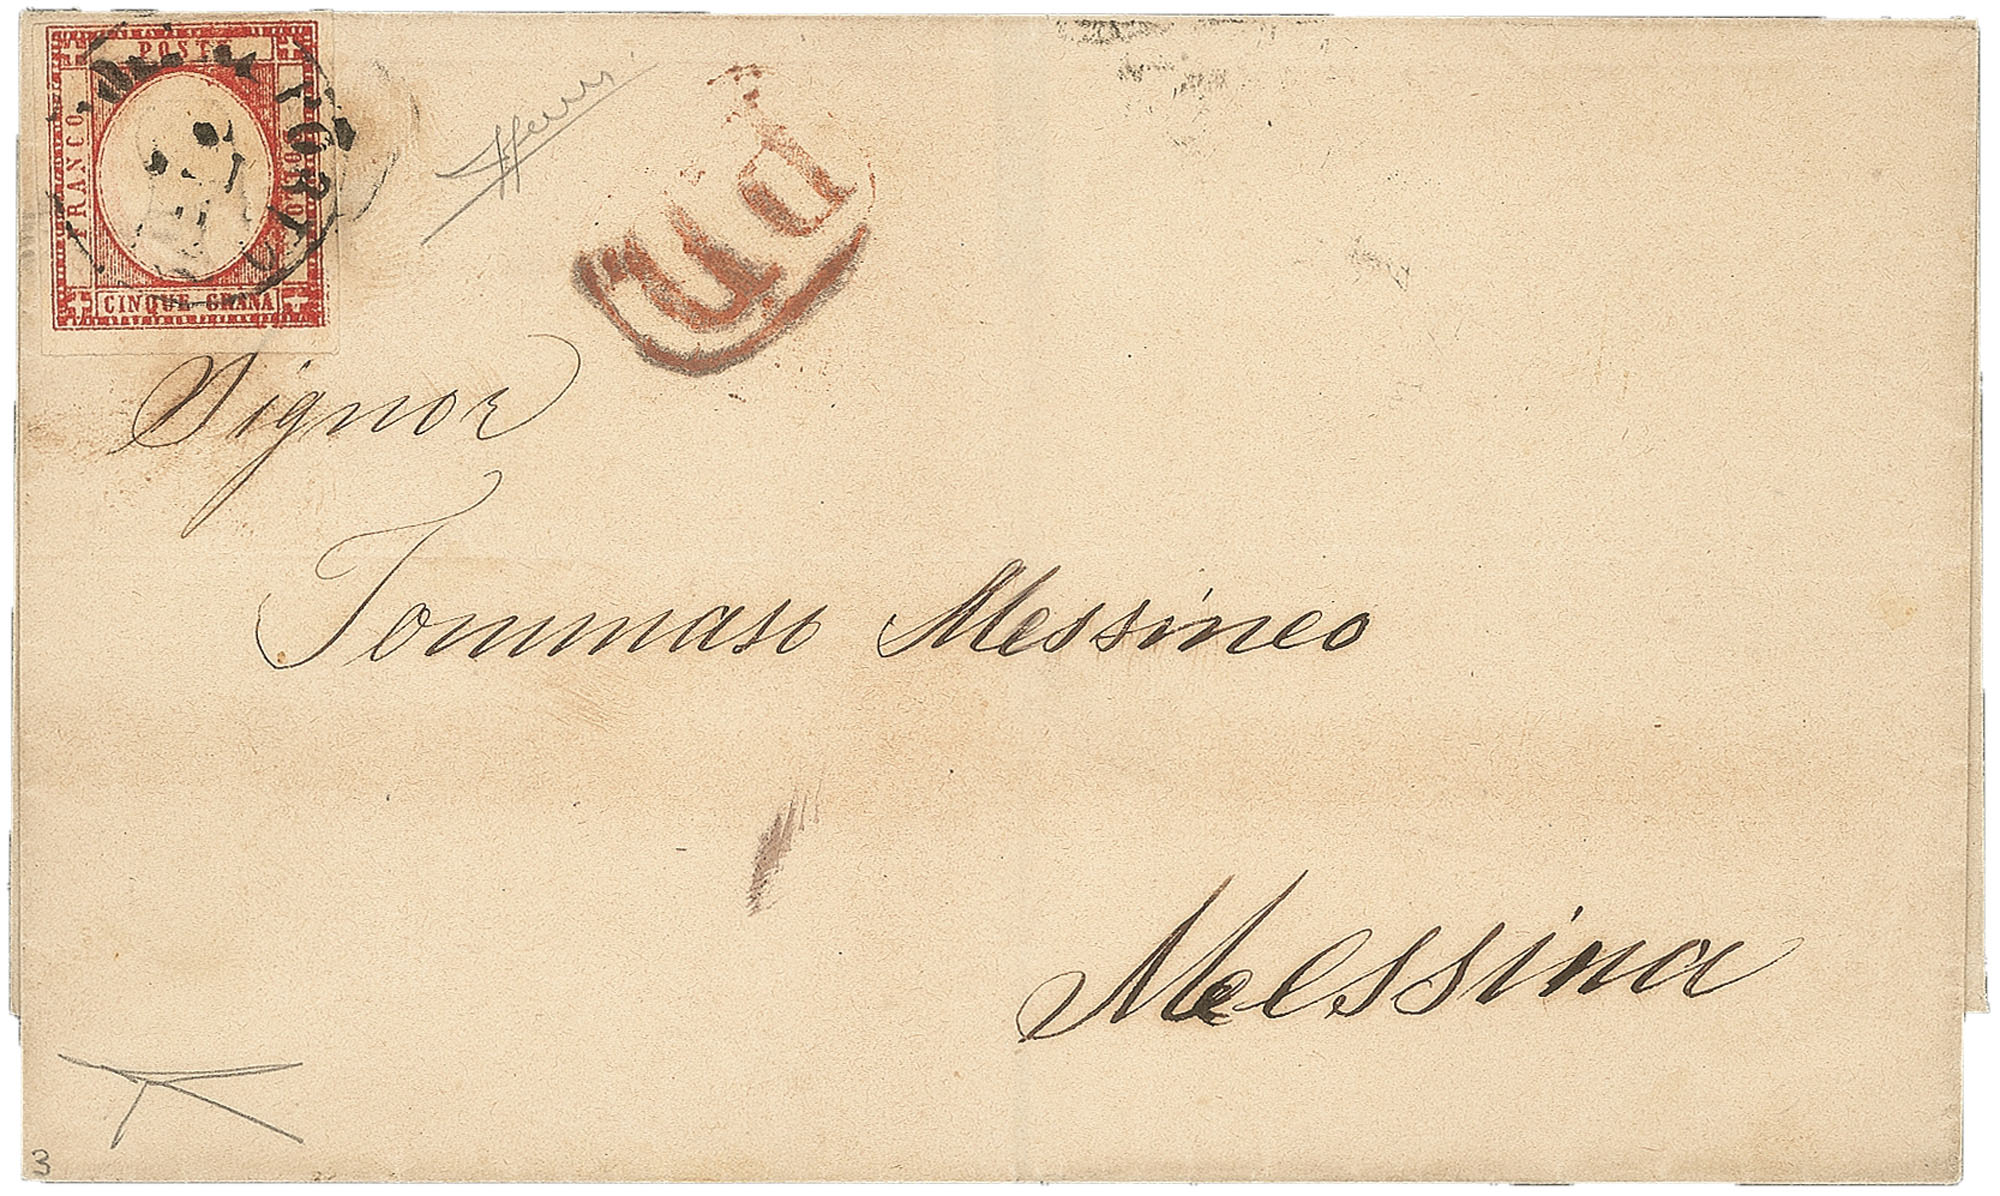 POSTE
FRANCO
BOLLO
CINQUE GRANA
PD
Signor
Tommaso Messineo
Messina
3